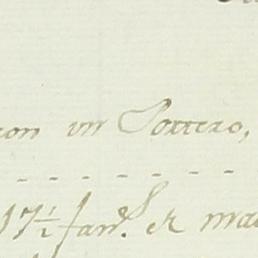 con un Portero,
- - - - - - -
17½ fan.s de ma